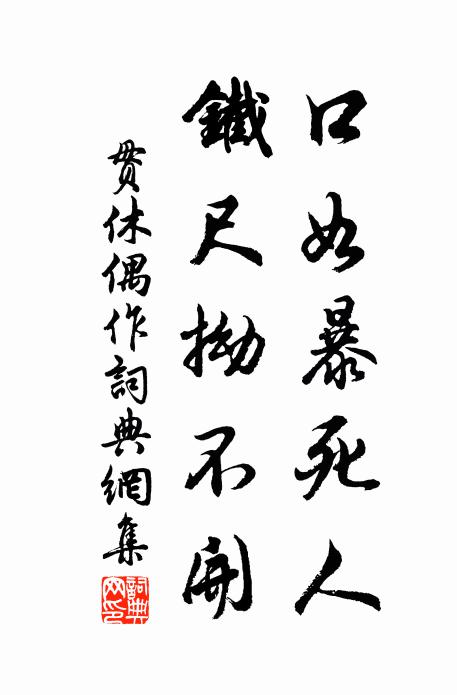 口如暴死人
鐵尺拗不開
貫休偶作詞典網集
詞典网印